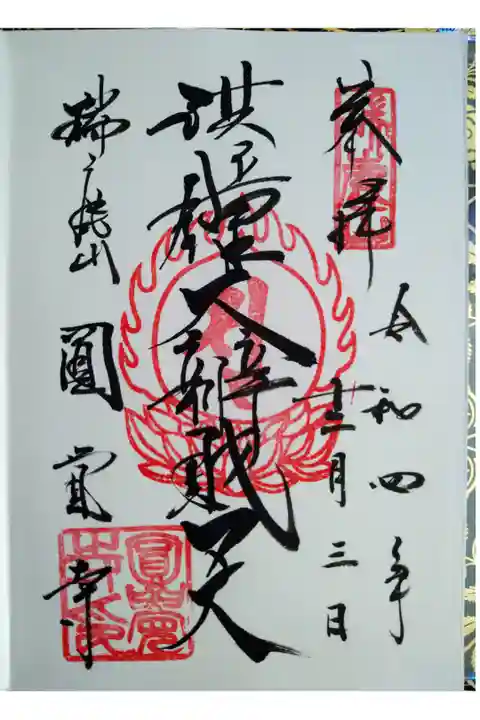 奉拝
令和四年
十二月三日
洪鐘大辨財天
瑞鹿山
圓覺寺